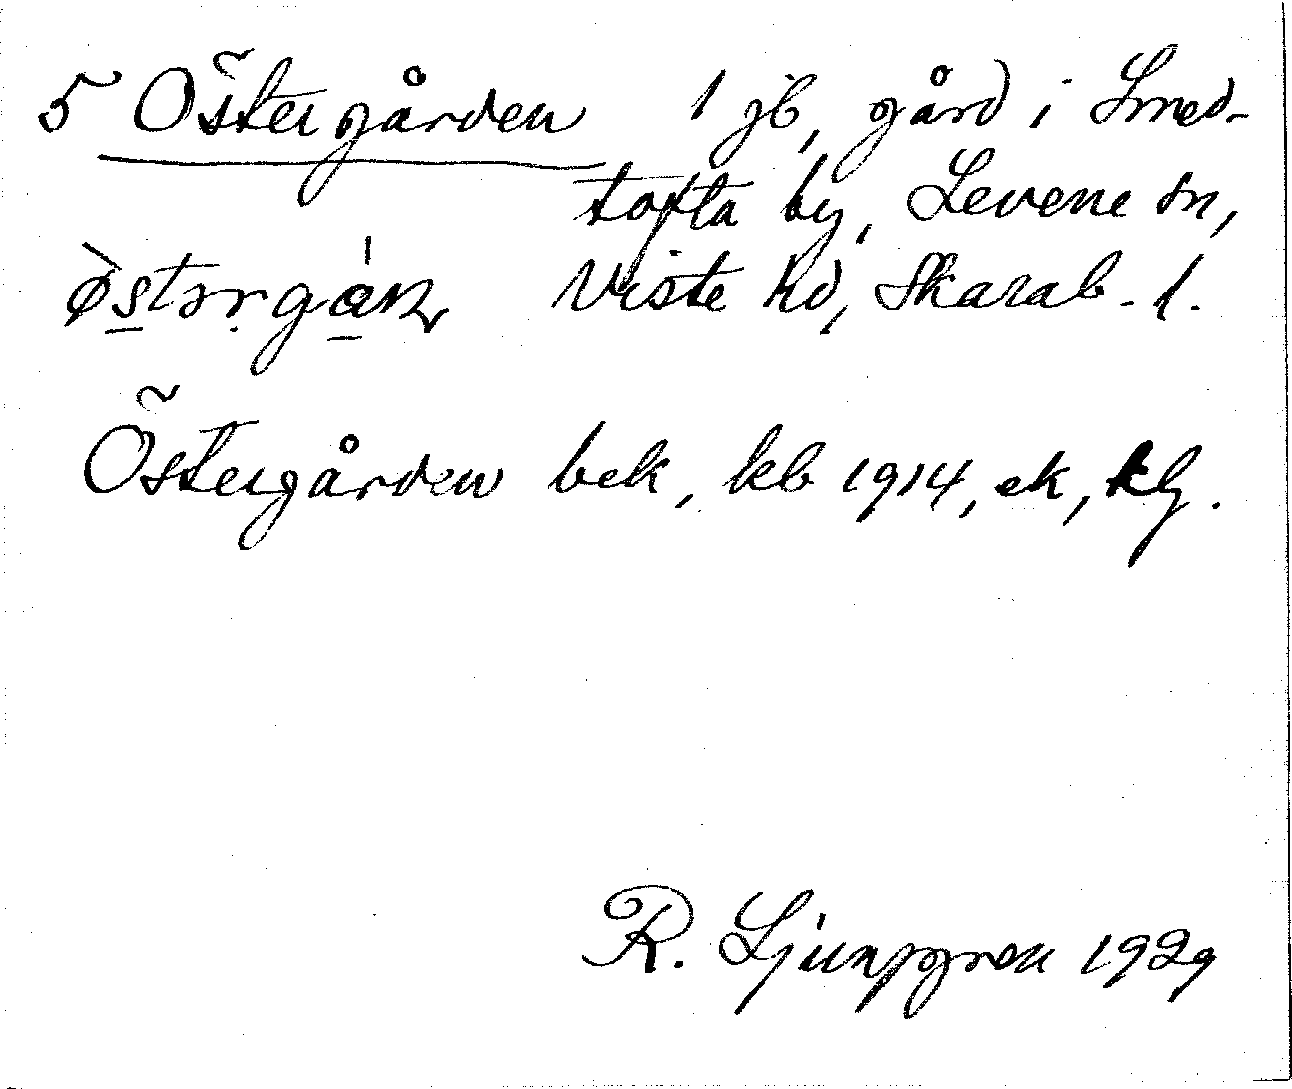 5 Östergården 1 jb, gård i Smed-
tofta by, Levene sn,
Viste hd, Skarab. l.
Östergården bek, kb 1914, ek, hfl.
R. Ljunggren 1929